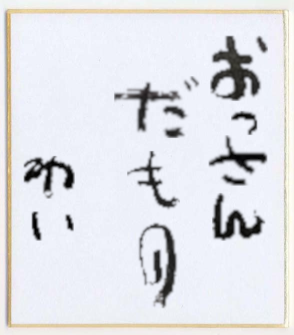 おっさん
だもり
めい